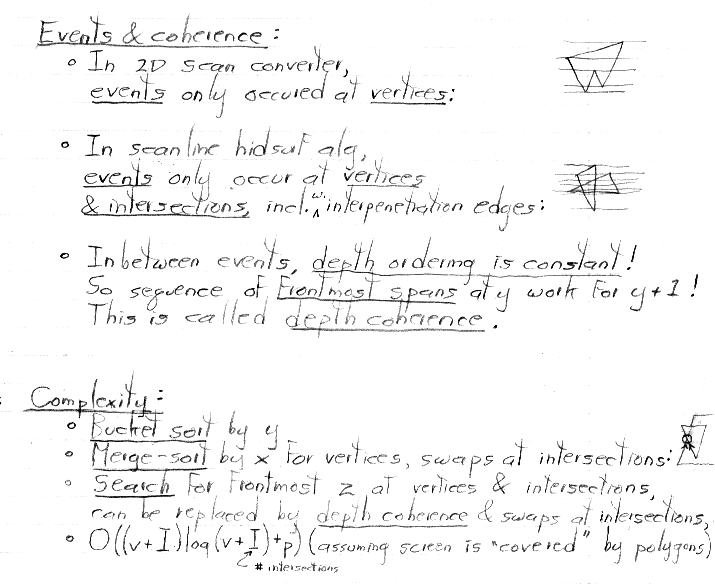 Events & coherence:
• In 2D scan converter,
events only occured at vertices:
• In scanline hidsurf alg,
events only occur at vertices
& intersections, incl. w. interpenetration edges:
• Inbetween events, depth ordering is constant!
So sequence of frontmost spans at y work for y+1!
This is called depth coherence.
Complexity:
• Bucket sort by y
• Merge-sort by x for vertices, swaps at intersections:
• Search for frontmost z at vertices & intersections,
can be replaced by depth coherence & swaps at intersections,
• O((v+I)log(v+I)+p) (assuming screen is "covered" by polygons)
# intersections